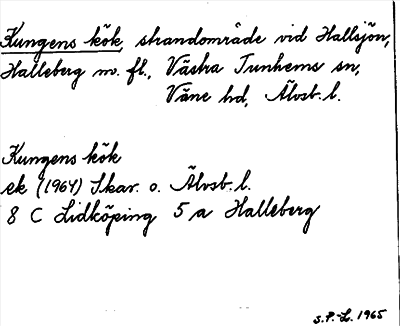 Kungens kök, strandområde vid Hallsjön,
Halleberg m. fl., Västra Tunhems sn,
Väne hd, Älvsb. l.
Kungens kök
ek (1964) Skar. o. Älvsb. l.
8 C Lidköping 5 a Halleberg
S.P.-L. 1965